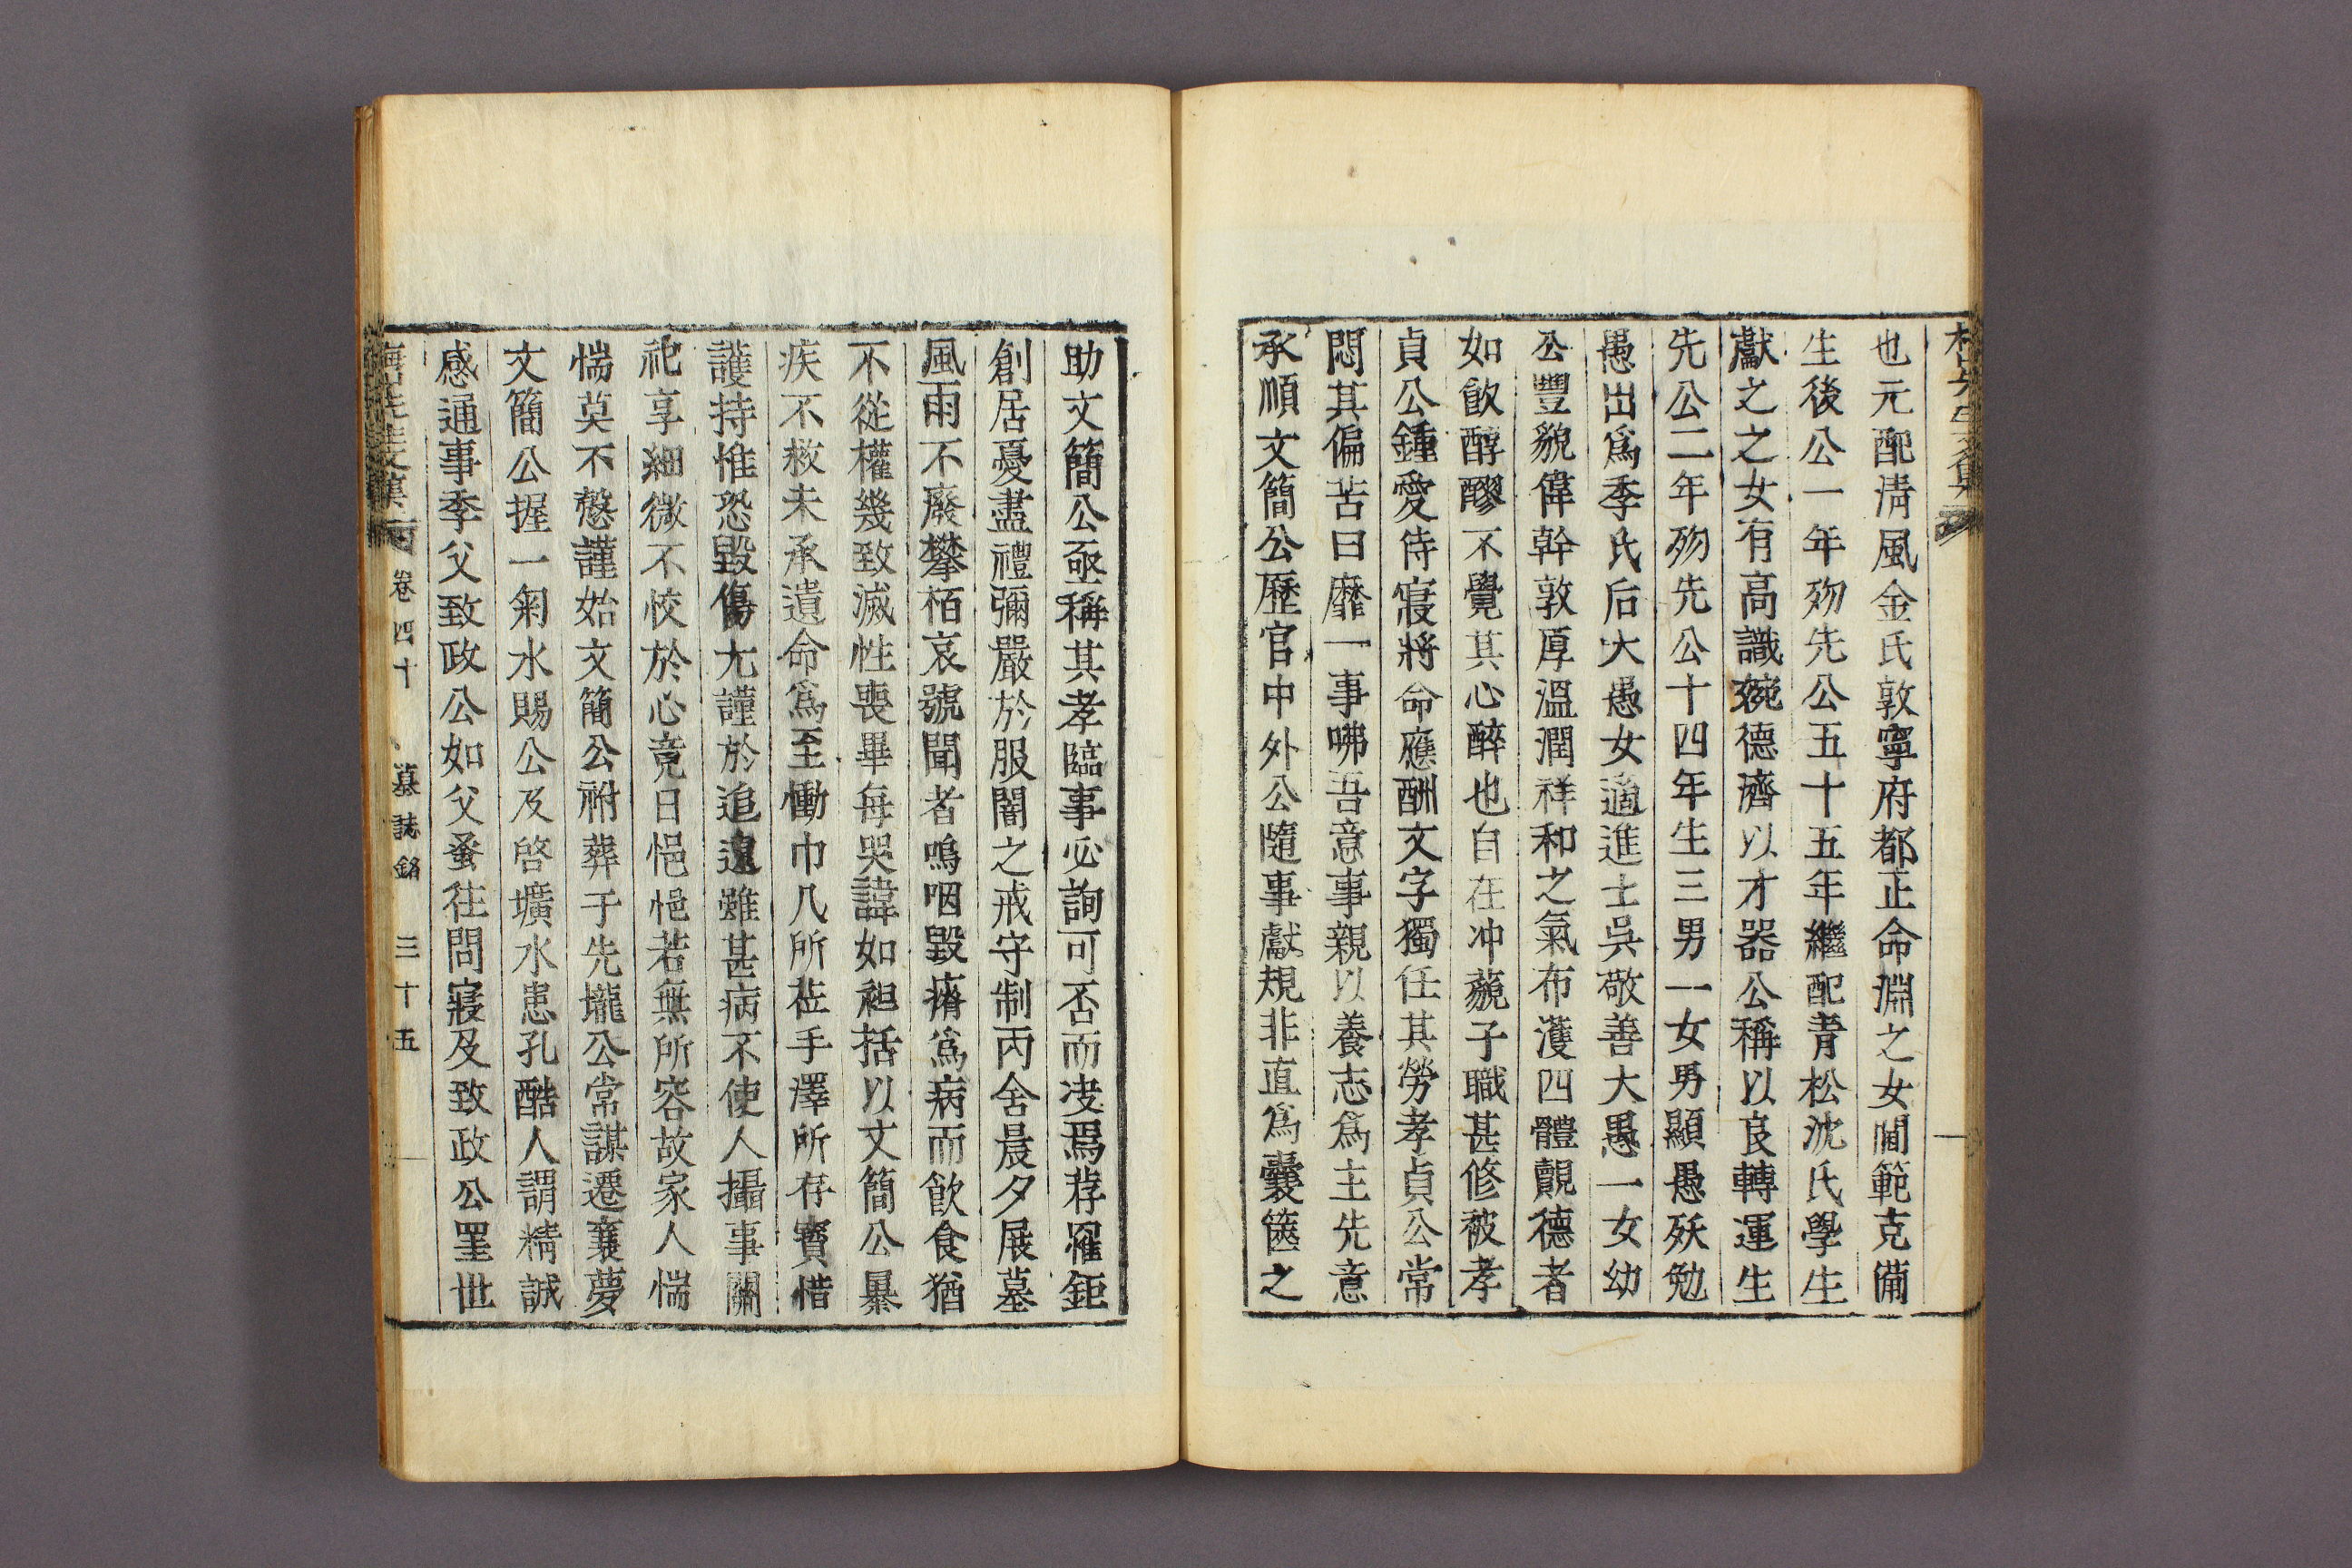 也元配淸風金氏敦寧府都正命淵之女閫範克備
生後公一年歾先公五十五年繼配靑松沈氏學生
獻之之女有高識婉德濟以才器公稱以良轉運生
先公二年歾先公十四年生三男一女男顯愚殀勉
愚出爲季氏后大愚女適進士吳敬善大愚一女幼
公豐貌偉幹敦厚溫潤祥和之氣布濩四體覿德者
如飮醇醪不覺其心醉也自在冲藐子職甚修被孝
貞公鍾愛侍寢將命應酬文字獨任其勞孝貞公常
悶其偏苦曰靡一事咈吾意事親以養志爲主先意
承順文簡公歷官中外公隨事獻規非直爲囊篋之
助文簡公亟稱其孝臨事必詢可否而决焉荐罹鉅
創居憂盡禮彌嚴於服闇之戒守制丙舍晨夕展墓
風雨不廢攀栢哀號聞者嗚咽毀瘠爲病而飮食猶
不從權幾致滅性喪畢每哭諱如袒括以文簡公暴
疾不救未承遺命爲至慟巾几所莅手澤所存寳惜
護持惟恐毀傷尢謹於追遠雖甚病不使人攝事關
祀享細微不恔於心竟日悒悒若無所容故家人惴
惴莫不慤謹始文簡公祔葬于先壠公常謀遷襄夢
文簡公握一匊水賜公及啓壙水患孔酷人謂精誠
感通事季父致政公如父蚤往問寢及致政公罣世
卷四十 墓誌銘 三十五